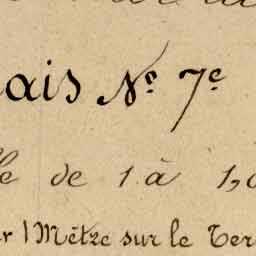 ais N° 7e
le de 1 à 1,0
r 1 Mètre sur le Ter